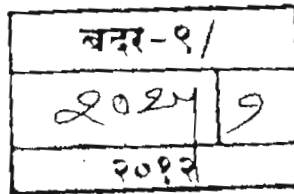 बदर-९/
२०२५ ७
२०१२